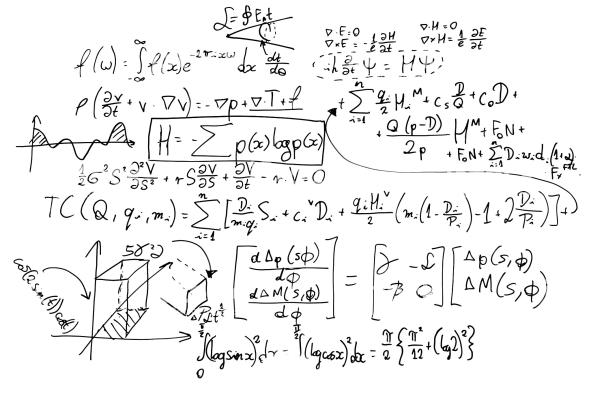 ∇·E=0 ∇·H=0
∇×E = -1/c ∂H/∂t ∇×H = 1/c ∂E/∂t
f(ω) = ∫_{-∞}^{∞} f(x)e^{-2πixω} dx
iħ ∂/∂t Ψ = HΨ
ρ(∂v/∂t + v·∇v) = -∇p + ∇·T + f
+ Σ_{i=1}^{n} q_i/2 H_i^M + c_s D/Q + c_o D +
H = -Σ p(x) log p(x)
+ Q(p-D)/2p H^M + F_o N +
1/2 σ² S² ∂²V/∂S² + rS ∂V/∂S + ∂V/∂t - r·V = 0
TC(Q, q_i, m_i) = Σ_{i=1}^{n} [D_i/(m_i q_i) S_i + c_i^V D_i + q_i H_i^V/2 (m_i(1 - D_i/P_i) - 1 + 2 D_i/P_i)] +
[dΔp(s,ϕ)/dϕ
dΔM(s,ϕ)/dϕ] = [γ -α
-β 0] [Δp(s,ϕ)
ΔM(s,ϕ)]
∫_0^{π/2} (log sin x)² dx = ∫^{π/2} (log cos x)² dx = π/2 {π²/12 + (log 2)²}